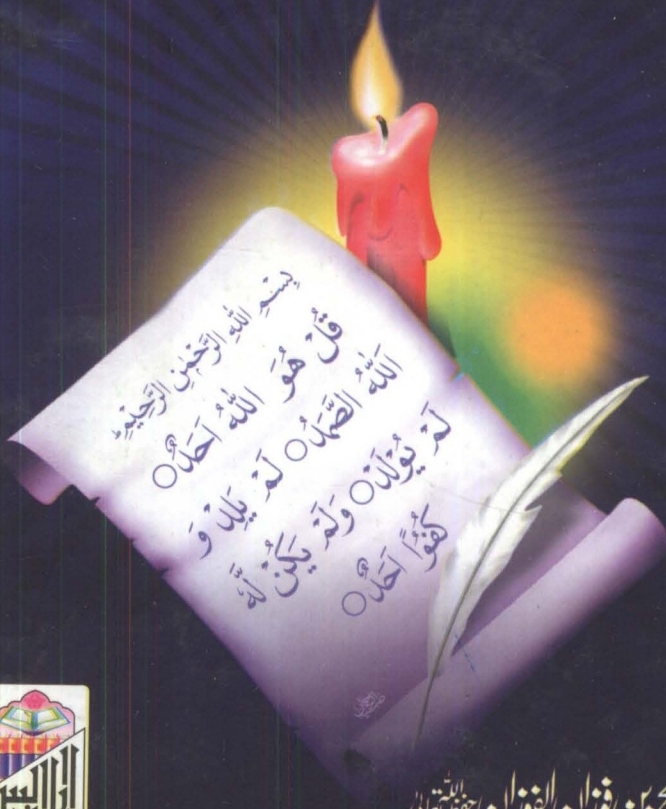 بِسْمِ اللهِ الرَّحْمٰنِ الرَّحِيْمِ
قُلْ هُوَ اللهُ اَحَدٌ○
اَللهُ الصَّمَدُ○ لَمْ يَلِدْ وَ
لَمْ يُوْلَدْ○ وَلَمْ يَكُنْ لَّهٗ
كُفُوًا اَحَدٌ○